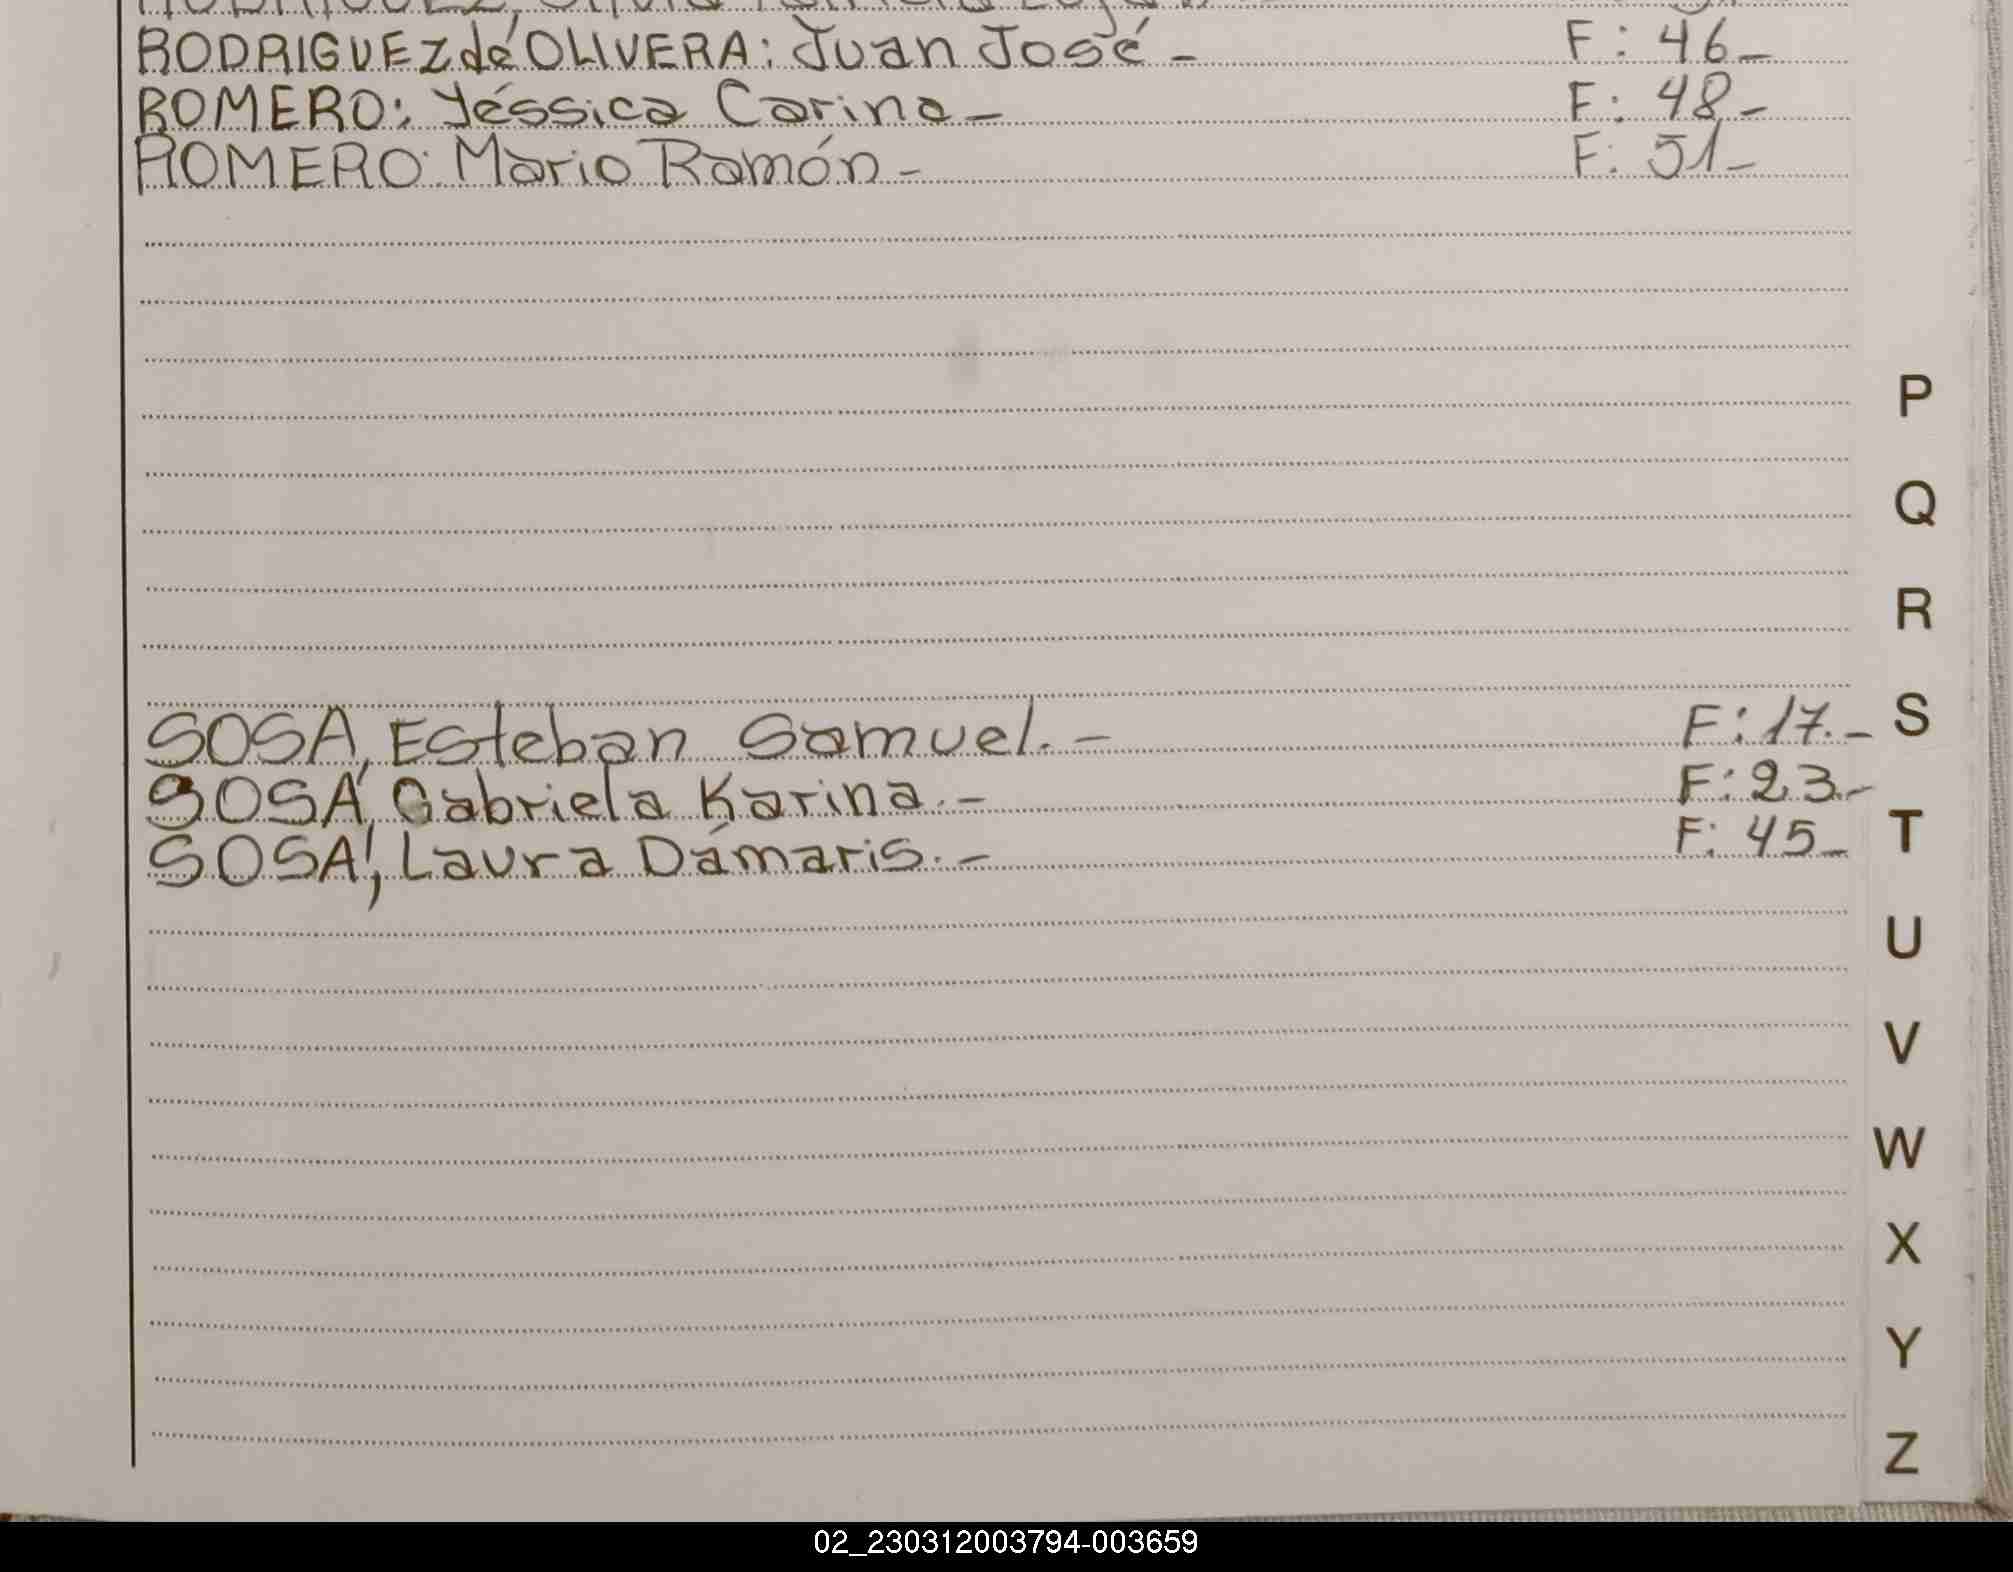 RODRIGUEZ de OLIVERA: Juan José - F: 46-
ROMERO: Yéssica Carina - F: 48-
ROMERO: Mario Ramón - F: 51-
P
Q
R
SOSA, Esteban Samuel. - F: 17.- S
SOSA, Gabriela Karina. - F: 23.-
SOSA, Laura Dámaris. - F: 45- T
U
V
W
X
Y
Z
02_230312003794-003659